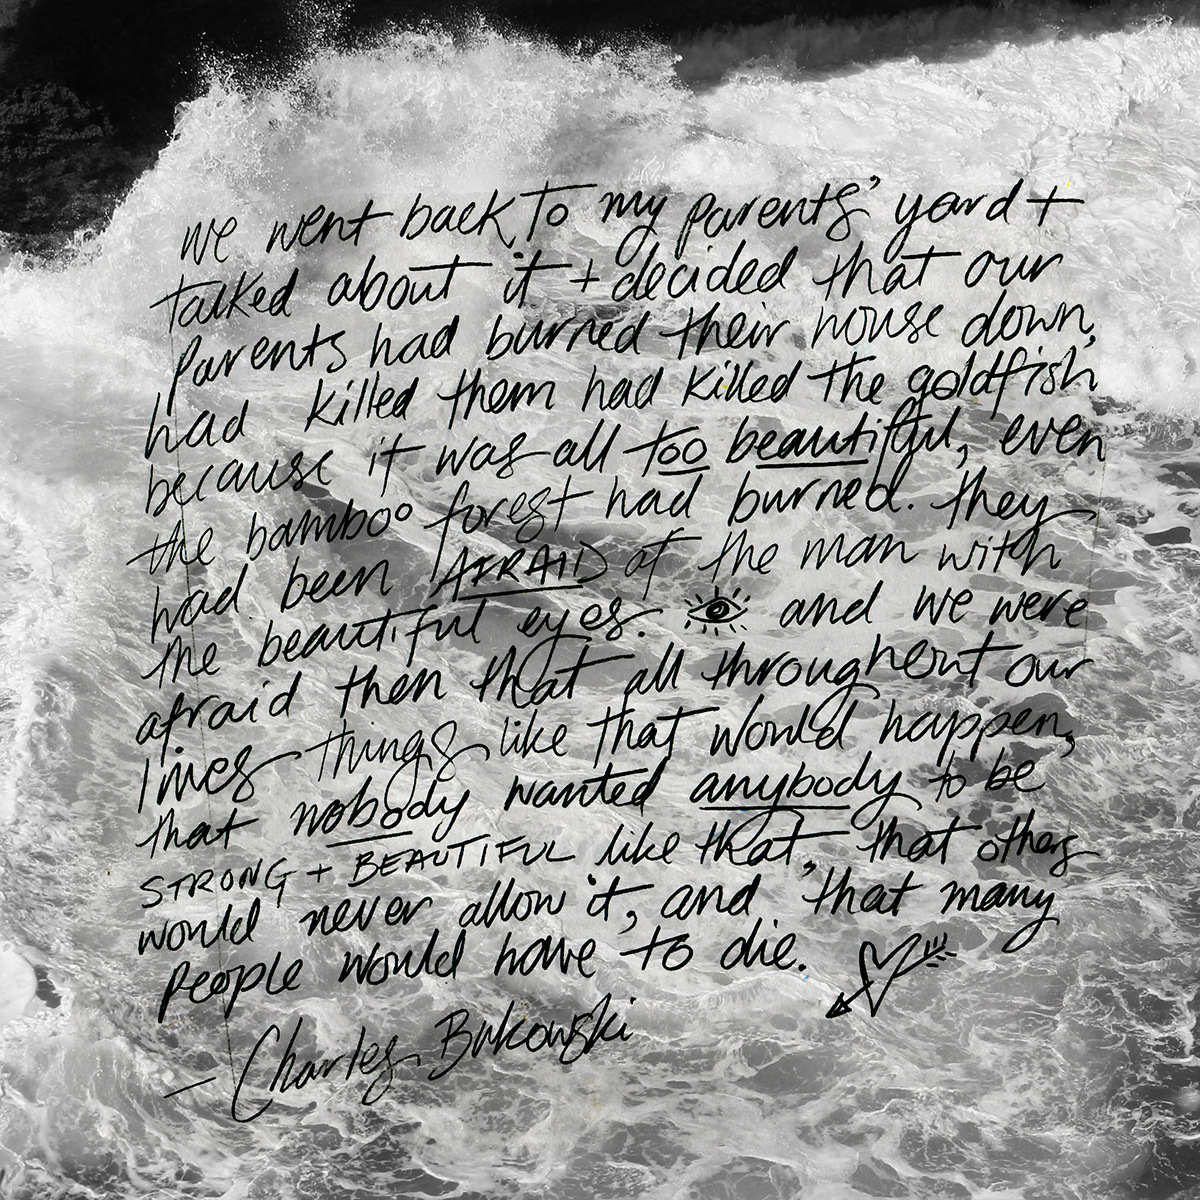 we went back to my parents' yard +
talked about it + decided that our
parents had burned their house down,
had killed them had killed the goldfish
because it was all too beautiful, even
the bamboo forest had burned. they
had been AFRAID of the man with
the beautiful eyes. and we were
afraid then that all throughout our
lives things like that would happen,
that nobody wanted anybody to be
STRONG + BEAUTIFUL like that, that others
would never allow it, and that many
people would have to die.
— Charles Bukowski